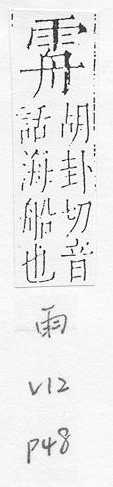 䨚
胡卦切音
話海船也
雨
V12
P48